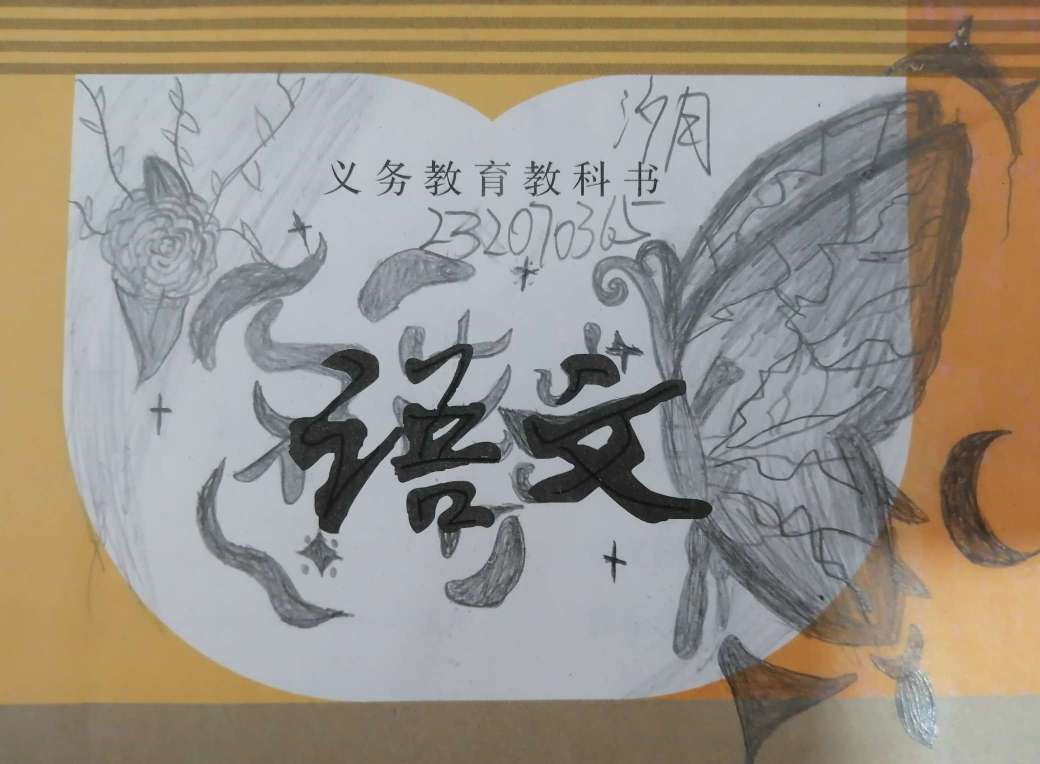 汐月
义务教育教科书
232070365
语文